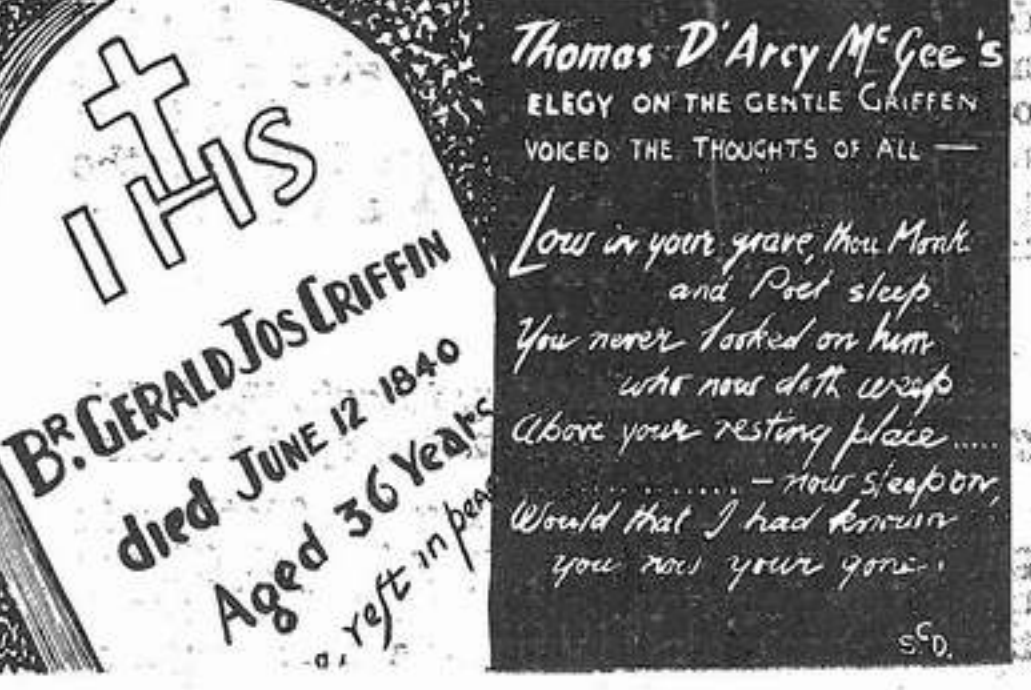 IHS
BR. GERALD JOS GRIFFIN
died JUNE 12 1840
Aged 36 Years
rest in peac
Thomas D'Arcy McGee's
ELEGY ON THE GENTLE GRIFFEN
VOICED THE THOUGHTS OF ALL —
Low in your grave, thou Monk
and Poet sleep.
You never looked on him
who now doth weep
Above your resting place .....
.............. — now sleep on,
Would that I had known
you now your gone.
ScD.